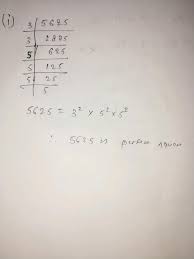 (i)
3 | 5625
3 | 1875
5 | 625
5 | 125
5 | 25
5
5625 = 3² × 5² × 5²
∴ 5625 is perfect square